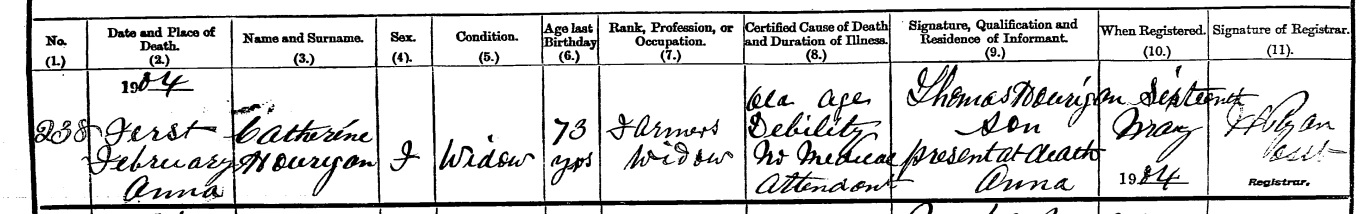 No.
(1.)
Date and Place of
Death.
(2.)
Name and Surname.
(3.)
Sex.
(4).
Condition.
(5.)
Age last
Birthday
(6.)
Rank, Profession, or
Occupation.
(7.)
Certified Cause of Death
and Duration of Illness.
(8.)
Signature, Qualification and
Residence of Informant.
(9.)
When Registered.
(10.)
Signature of Registrar.
(11).
238
1904
First
February
Anna
Catherine
Hourigan
F
Widow
73
yrs
Farmers
Widow
Old Age
Debility
No Medical
Attendant
Thomas Hourigan
Son
present at death
Anna
Sixteenth
May
1904
Registrar.